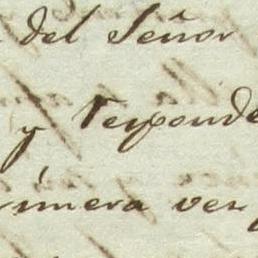 del Señor
y responde
rimera vez